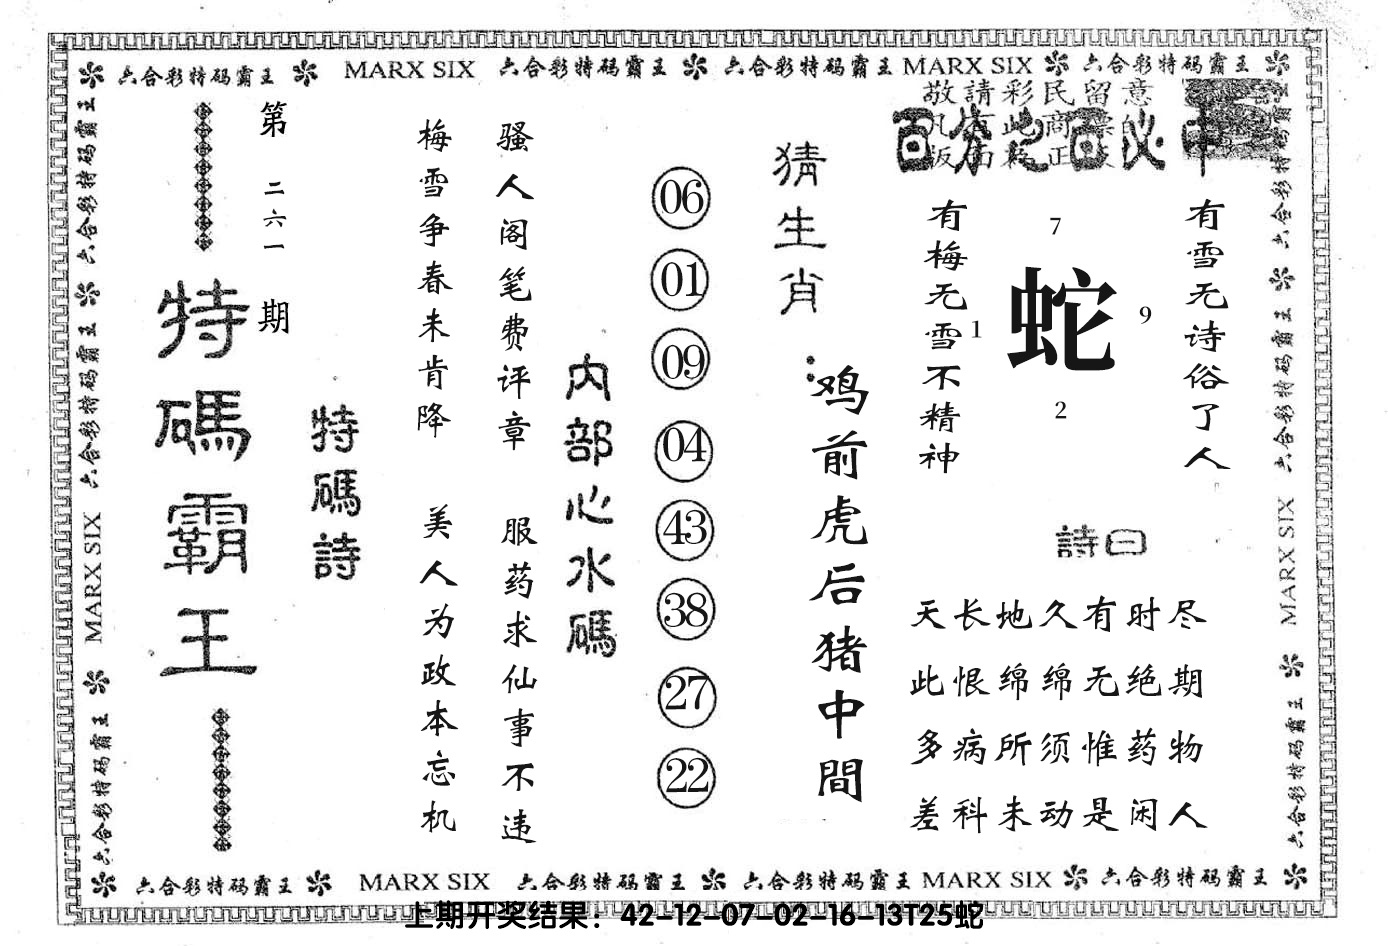 六合彩特码霸王 MARX SIX 六合彩特码霸王 六合彩特码霸王 MARX SIX 六合彩特码霸王
六合彩特码霸王 六合彩特码霸王 MARX SIX 六合彩特码霸王
第二六一期
特碼霸王
特碼詩
梅雪争春未肯降
骚人阁笔费评章
美人为政本忘机
服药求仙事不违
内部心水碼
06
01
09
04
43
38
27
22
猜生肖：
鸡前虎后猪中間
敬請彩民留意
百分之百必中
有梅无雪不精神
7
1
蛇
9
2
有雪无诗俗了人
詩曰
天长地久有时尽
此恨绵绵无绝期
多病所须惟药物
差科未动是闲人
六合彩特码霸王 六合彩特码霸王 MARX SIX 六合彩特码霸王
六合彩特码霸王 MARX SIX 六合彩特码霸王 六合彩特码霸王 MARX SIX 六合彩特码霸王
上期开奖结果：42-12-07-02-16-13T25蛇